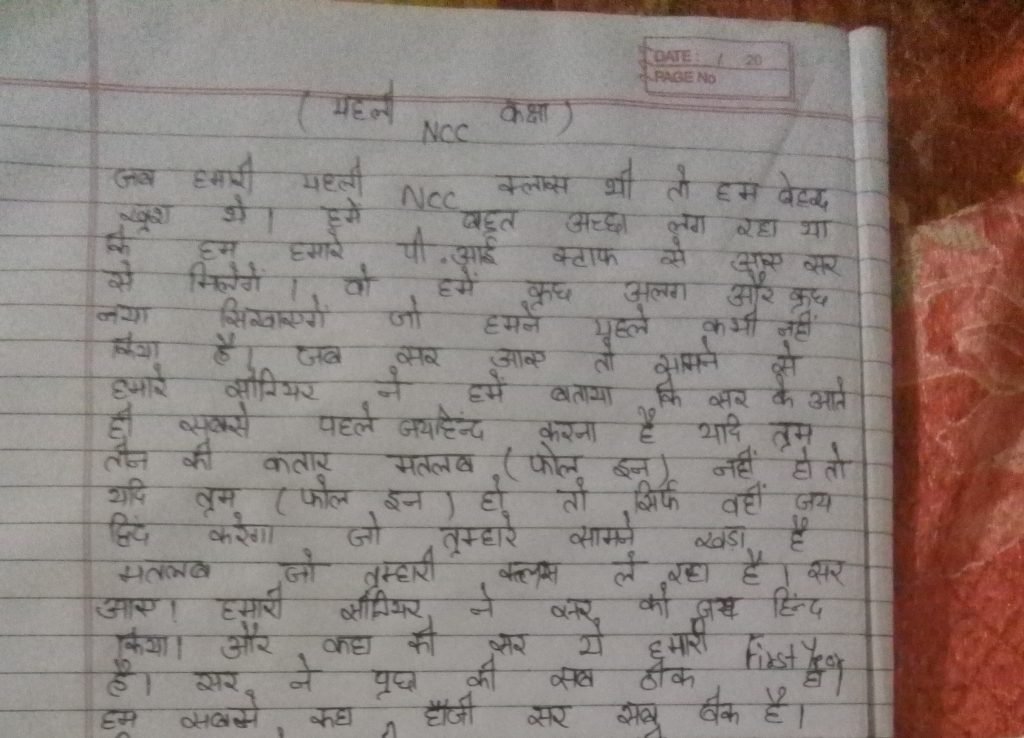 DATE: / 20
PAGE No
(पहली NCC कक्षा)
जब हमारी पहली NCC क्लास थी तो हम बेहद
खुश थे। हमे बहुत अच्छा लग रहा था
के हम हमारे पी.आई स्टाफ से आस सर
से मिलेगें। वो हमें कुछ अलग और कुछ
नया सिखाएगें जो हमने पहले कभी नहीं
किया है। जब सर आए तो सामने से
हमारे सीनियर ने हमें बताया कि सर के आते
ही सबसे पहले जयहिन्द करना है यदि तुम
तीन की कतार मतलब (फोल इन) नहीं हो तो
यदि तुम (फोल इन) हो तो सिर्फ वहीं जय
हिंद करेगा जो तुम्हारे सामने खड़ा है
मतलब जो तुम्हारी क्लास ले रहा है। सर
आए। हमारी सीनियर ने सर को जय हिन्द
किया। और कहा की सर ये हमारी First Year
है। सर ने पूछा की सब ठीक हो।
हम सबने कहा, हाँजी सर सब ठीक है।